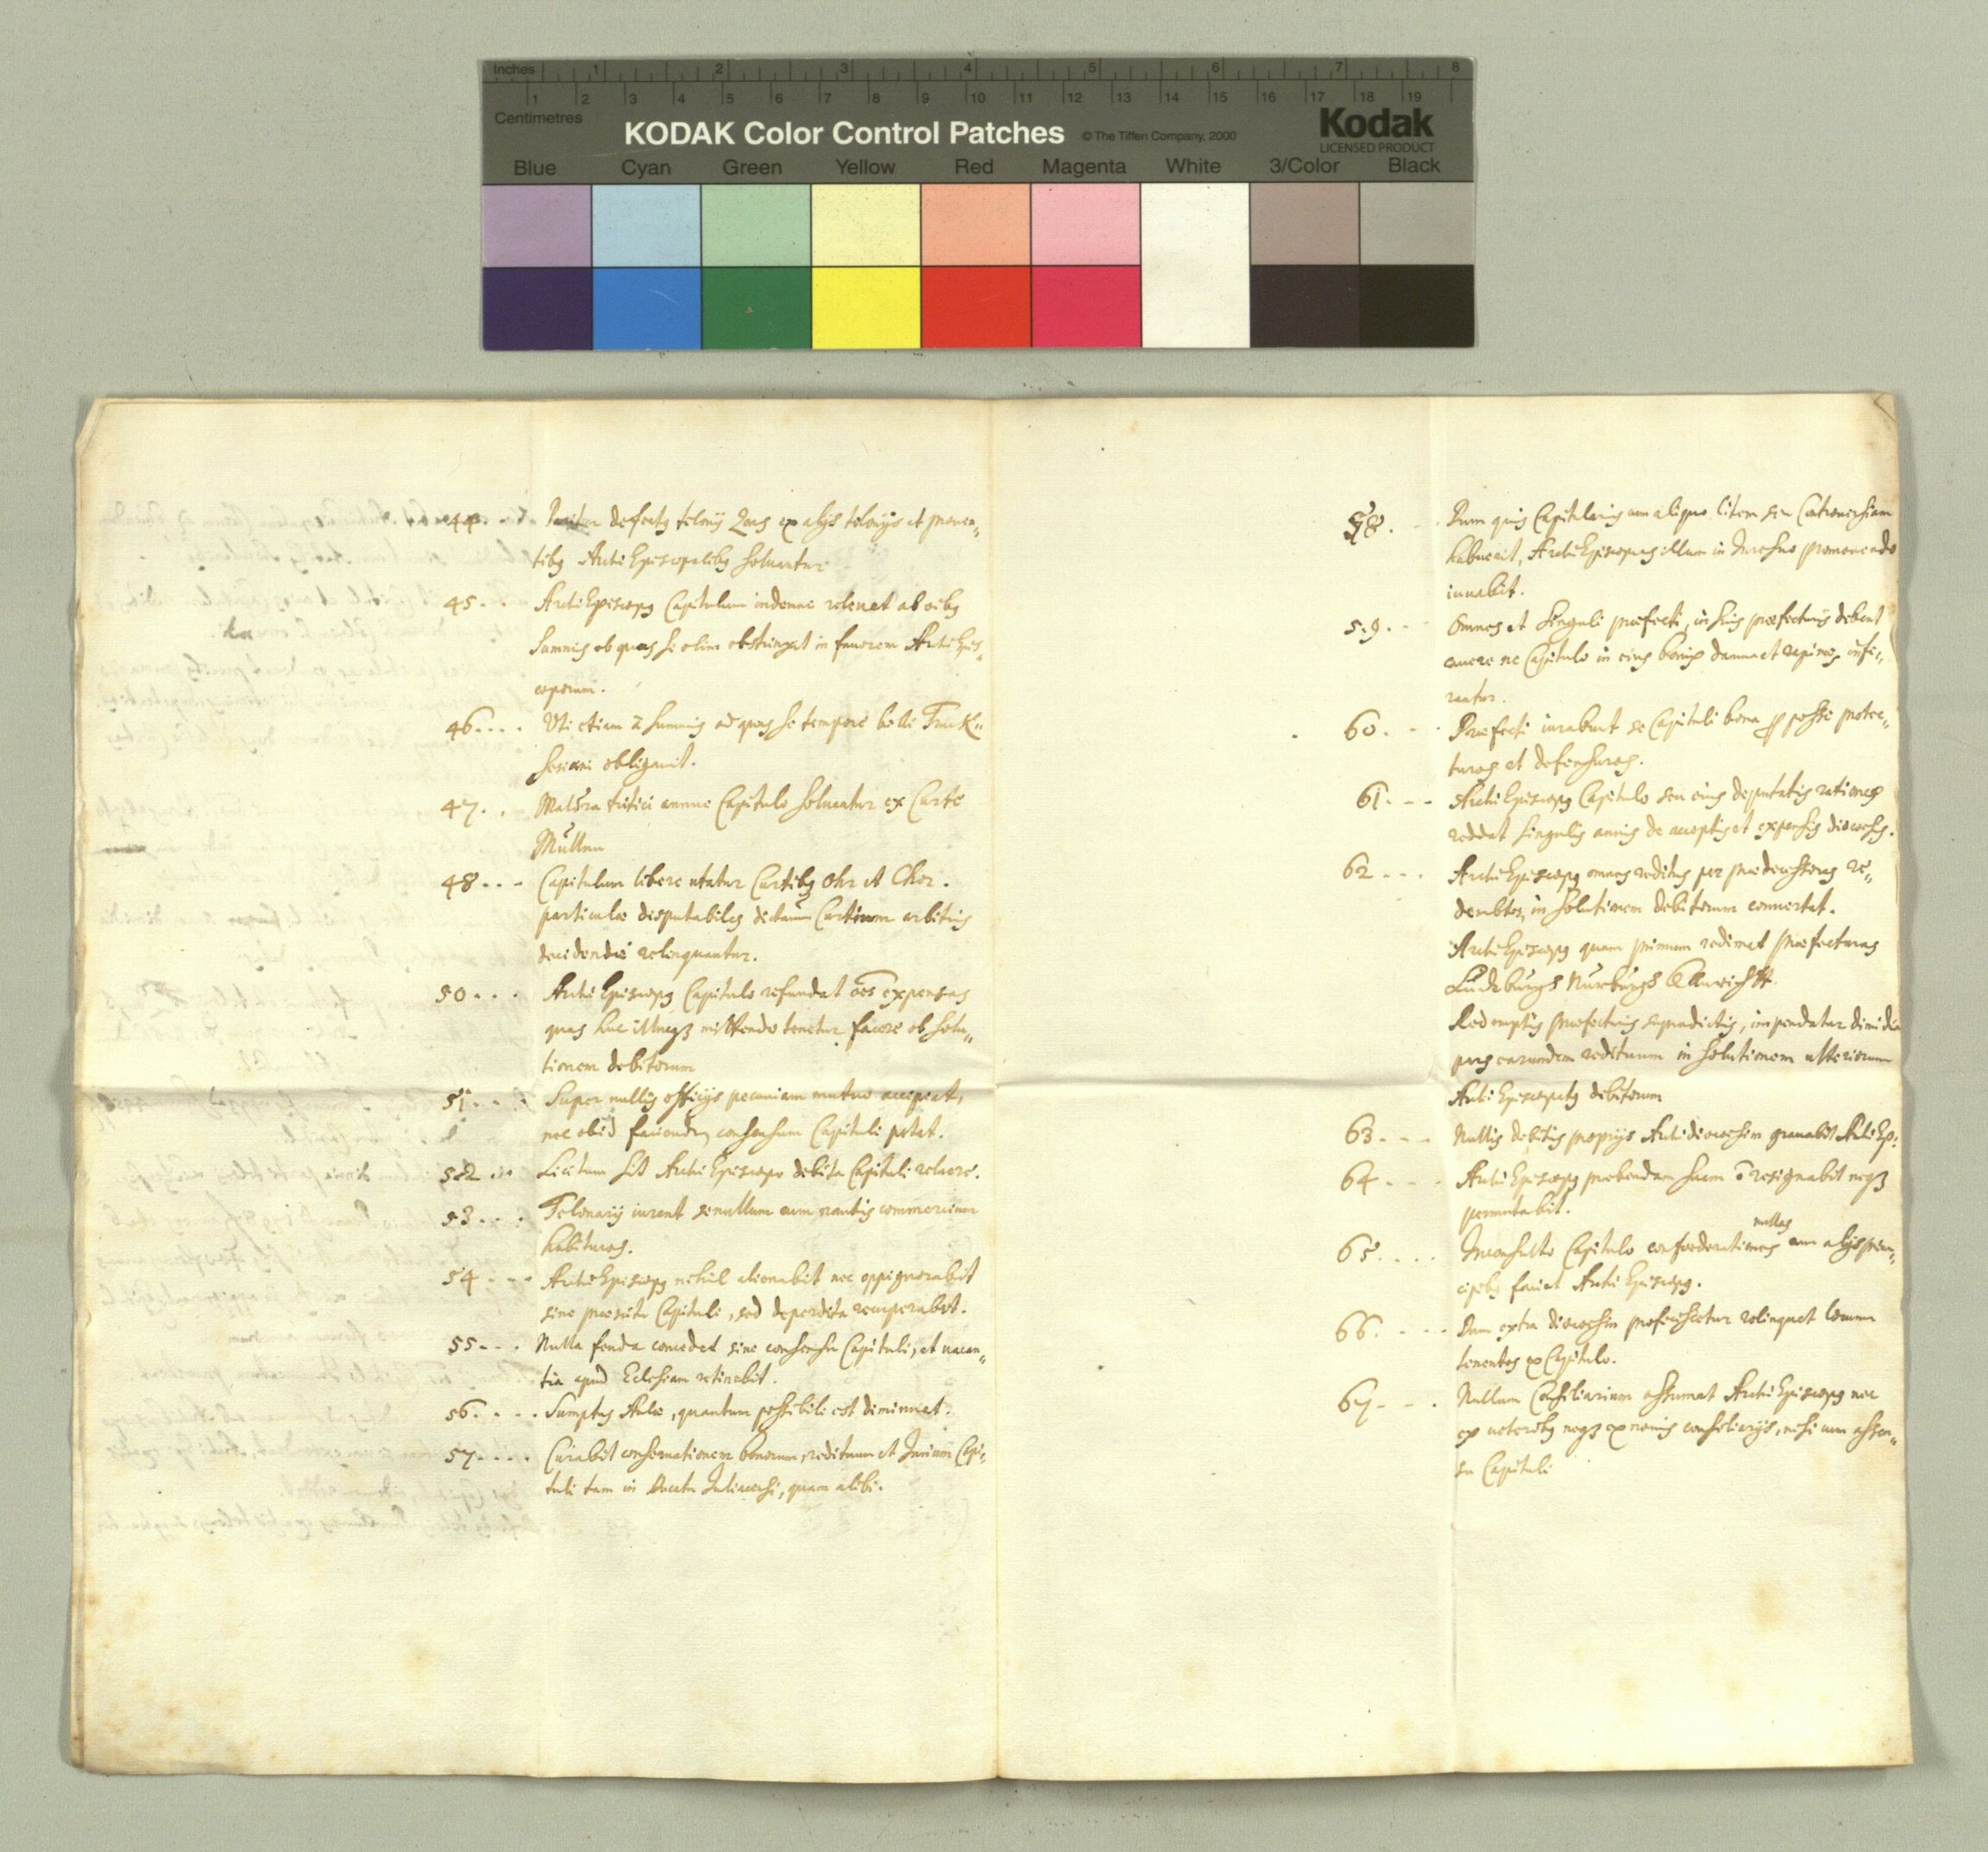 Inches 1 2 3 4 5 6 7 8
1 2 3 4 5 6 7 8 9 10 11 12 13 14 15 16 17 18 19
Centimetres
KODAK Color Control Patches © The Tiffen Company, 2000 Kodak
LICENSED PRODUCT
Blue Cyan Green Yellow Red Magenta White 3/Color Black
44. defectg telonij ex alijs telonijs et proven„
tibg ArchiEpiscopalibg solvantur
45. ArchiEpiscopg Capitulum indemne relevet ab oibg
summis ob quas se olim obstrinxit in favorem ArchiEpis„
coporum.
46. Uti etiam à summis ad quas se tempore belli Truck„
sesiani obligavit.
47. Maldra tritici annue Capitulo solvantur ex Curte
Müllem
48. Capitulum libere utatur Curtibg Ohr et Chor.
particulae disputabiles dictarum Curtium arbitris
decidendae relinquantur.
50. ArchiEpiscopg Capitulo refundat oēs expensas
quas huc illucqz mittendo tenetur facere ob solu„
tionem debitorum
51. Super nullis officijs pecuniam mutuo accipiat,
nec ob id faciendum consensum Capituli petat.
52. Licitum sit ArchiEpiscopo debita Capituli reluere.
53. Telonarij iurent se nullum cum nautis commercium
habituros.
54. ArchiEpiscopg nihil alienabit nec oppignorabit
sine praescitu Capituli, sed deperdita recuperabit.
55. Nulla feuda concedet sine consensu Capituli, et vacan„
tia apud Eclesiam retinebit.
56. Sumptus Aulae, quantum possibile est diminuet.
57. Curabit conservationem bonorum, redituum et Jurium Capi„
tuli tam in Ducatu Juliacensi, quam alibi.
58. Dum quis Capitularis cum aliquo litem seu Controversiam
habuerit, ArchiEpiscopus illum in Jure suo promovendo
iuvabit.
59. Omnes et singuli praefecti, in suis praefecturis debent
cavere ne Capitulo in eius bonis damna et rapinae infe„
rantur.
60. Praefecti iurabunt se Capituli bona p posse protec„
turos et defensuros.
61. ArchiEpiscopg Capitulo seu eius deputatis rationes
reddat singulis annis de acceptis et expensis dioecesis.
62. ArchiEpiscopg omnes reditus per praedecessores re„
demptos, in solutionem debitorum convertat.
ArchiEpiscopg quam primum redimat praefecturas
Nürburg
Redemptis praefecturis supradictis, impendatur dimidia
pars earundem redituum in solutionem ulteriorum
ArchiEpiscopatg debitorum
63. Nullis debitis proprijs Archidioecesin gravabit ArchiEp:
64. ArchiEpiscopg praebendam suam ō resignabit neqz
permutabit.
65. Inconsulto Capitulo confoederationes nullas cum alijs prin„
cipibg faciet ArchiEpiscopg.
66. Dum extra dioecesin proficiscetur relinquet locum
tenentes ex Capitulo.
67. Nullum Consiliarium assumat ArchiEpiscopg nec
ex veteribg neqz ex novis consiliarijs, nisi cum assen„
su Capituli